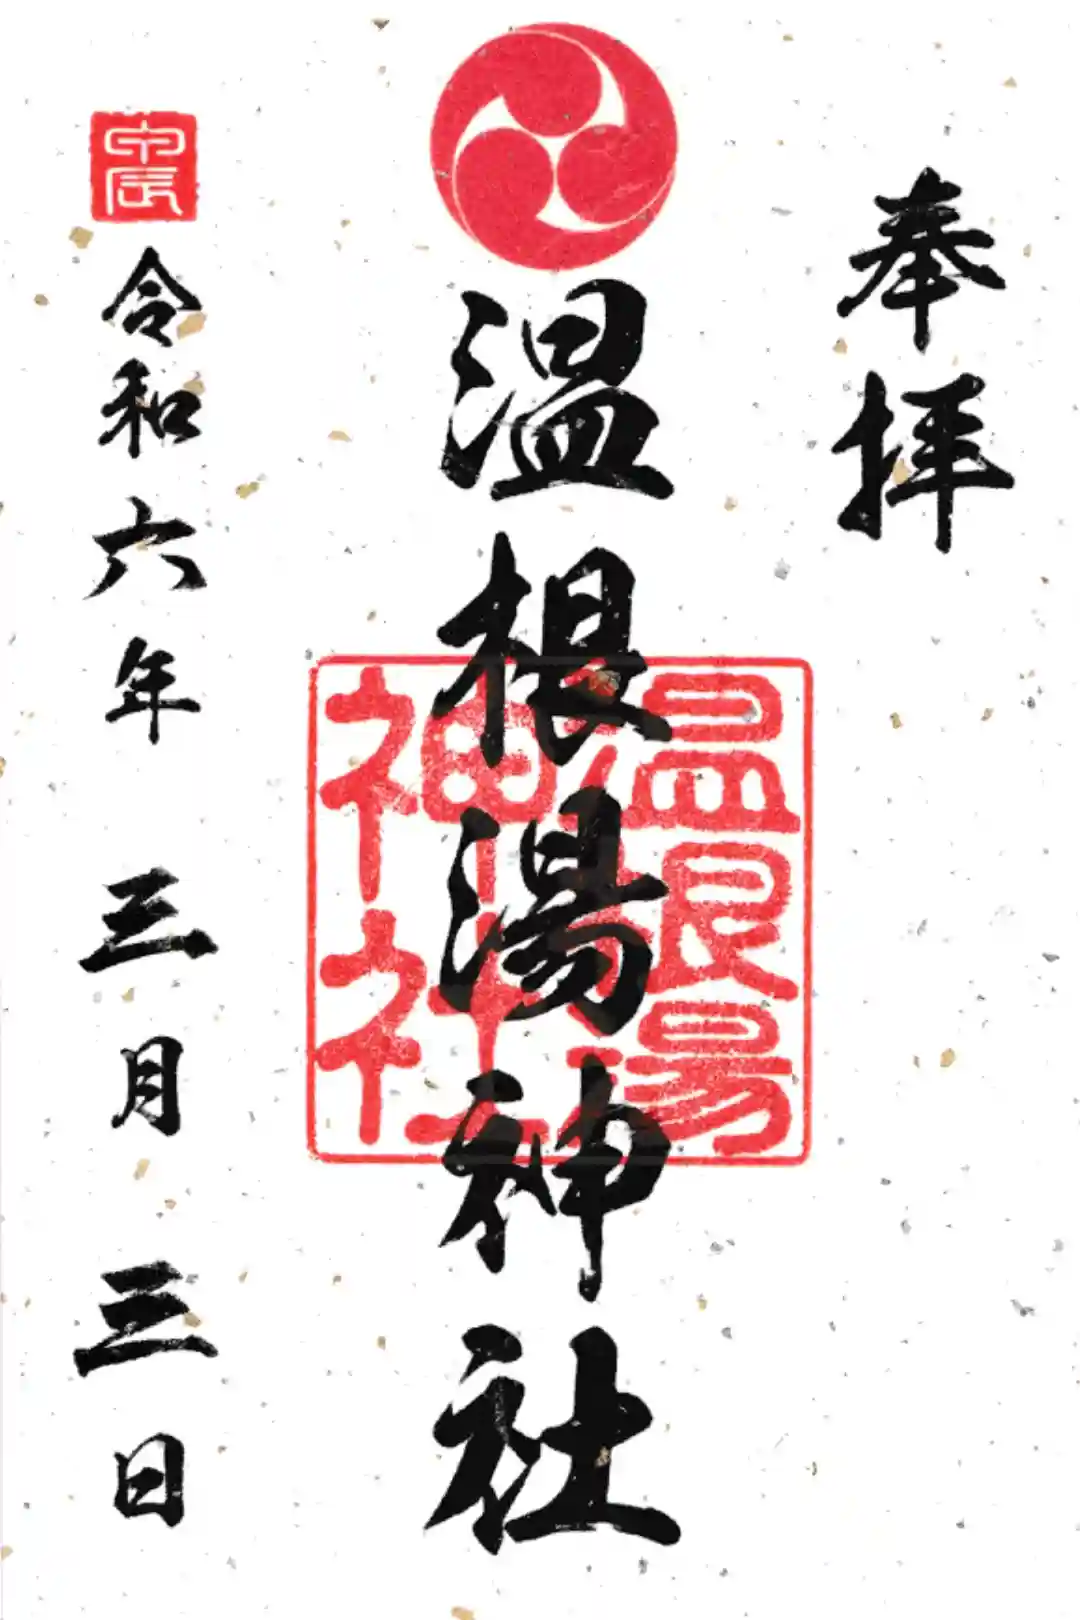 奉拝
温根湯神社
温根湯
神社
令和六年三月三日